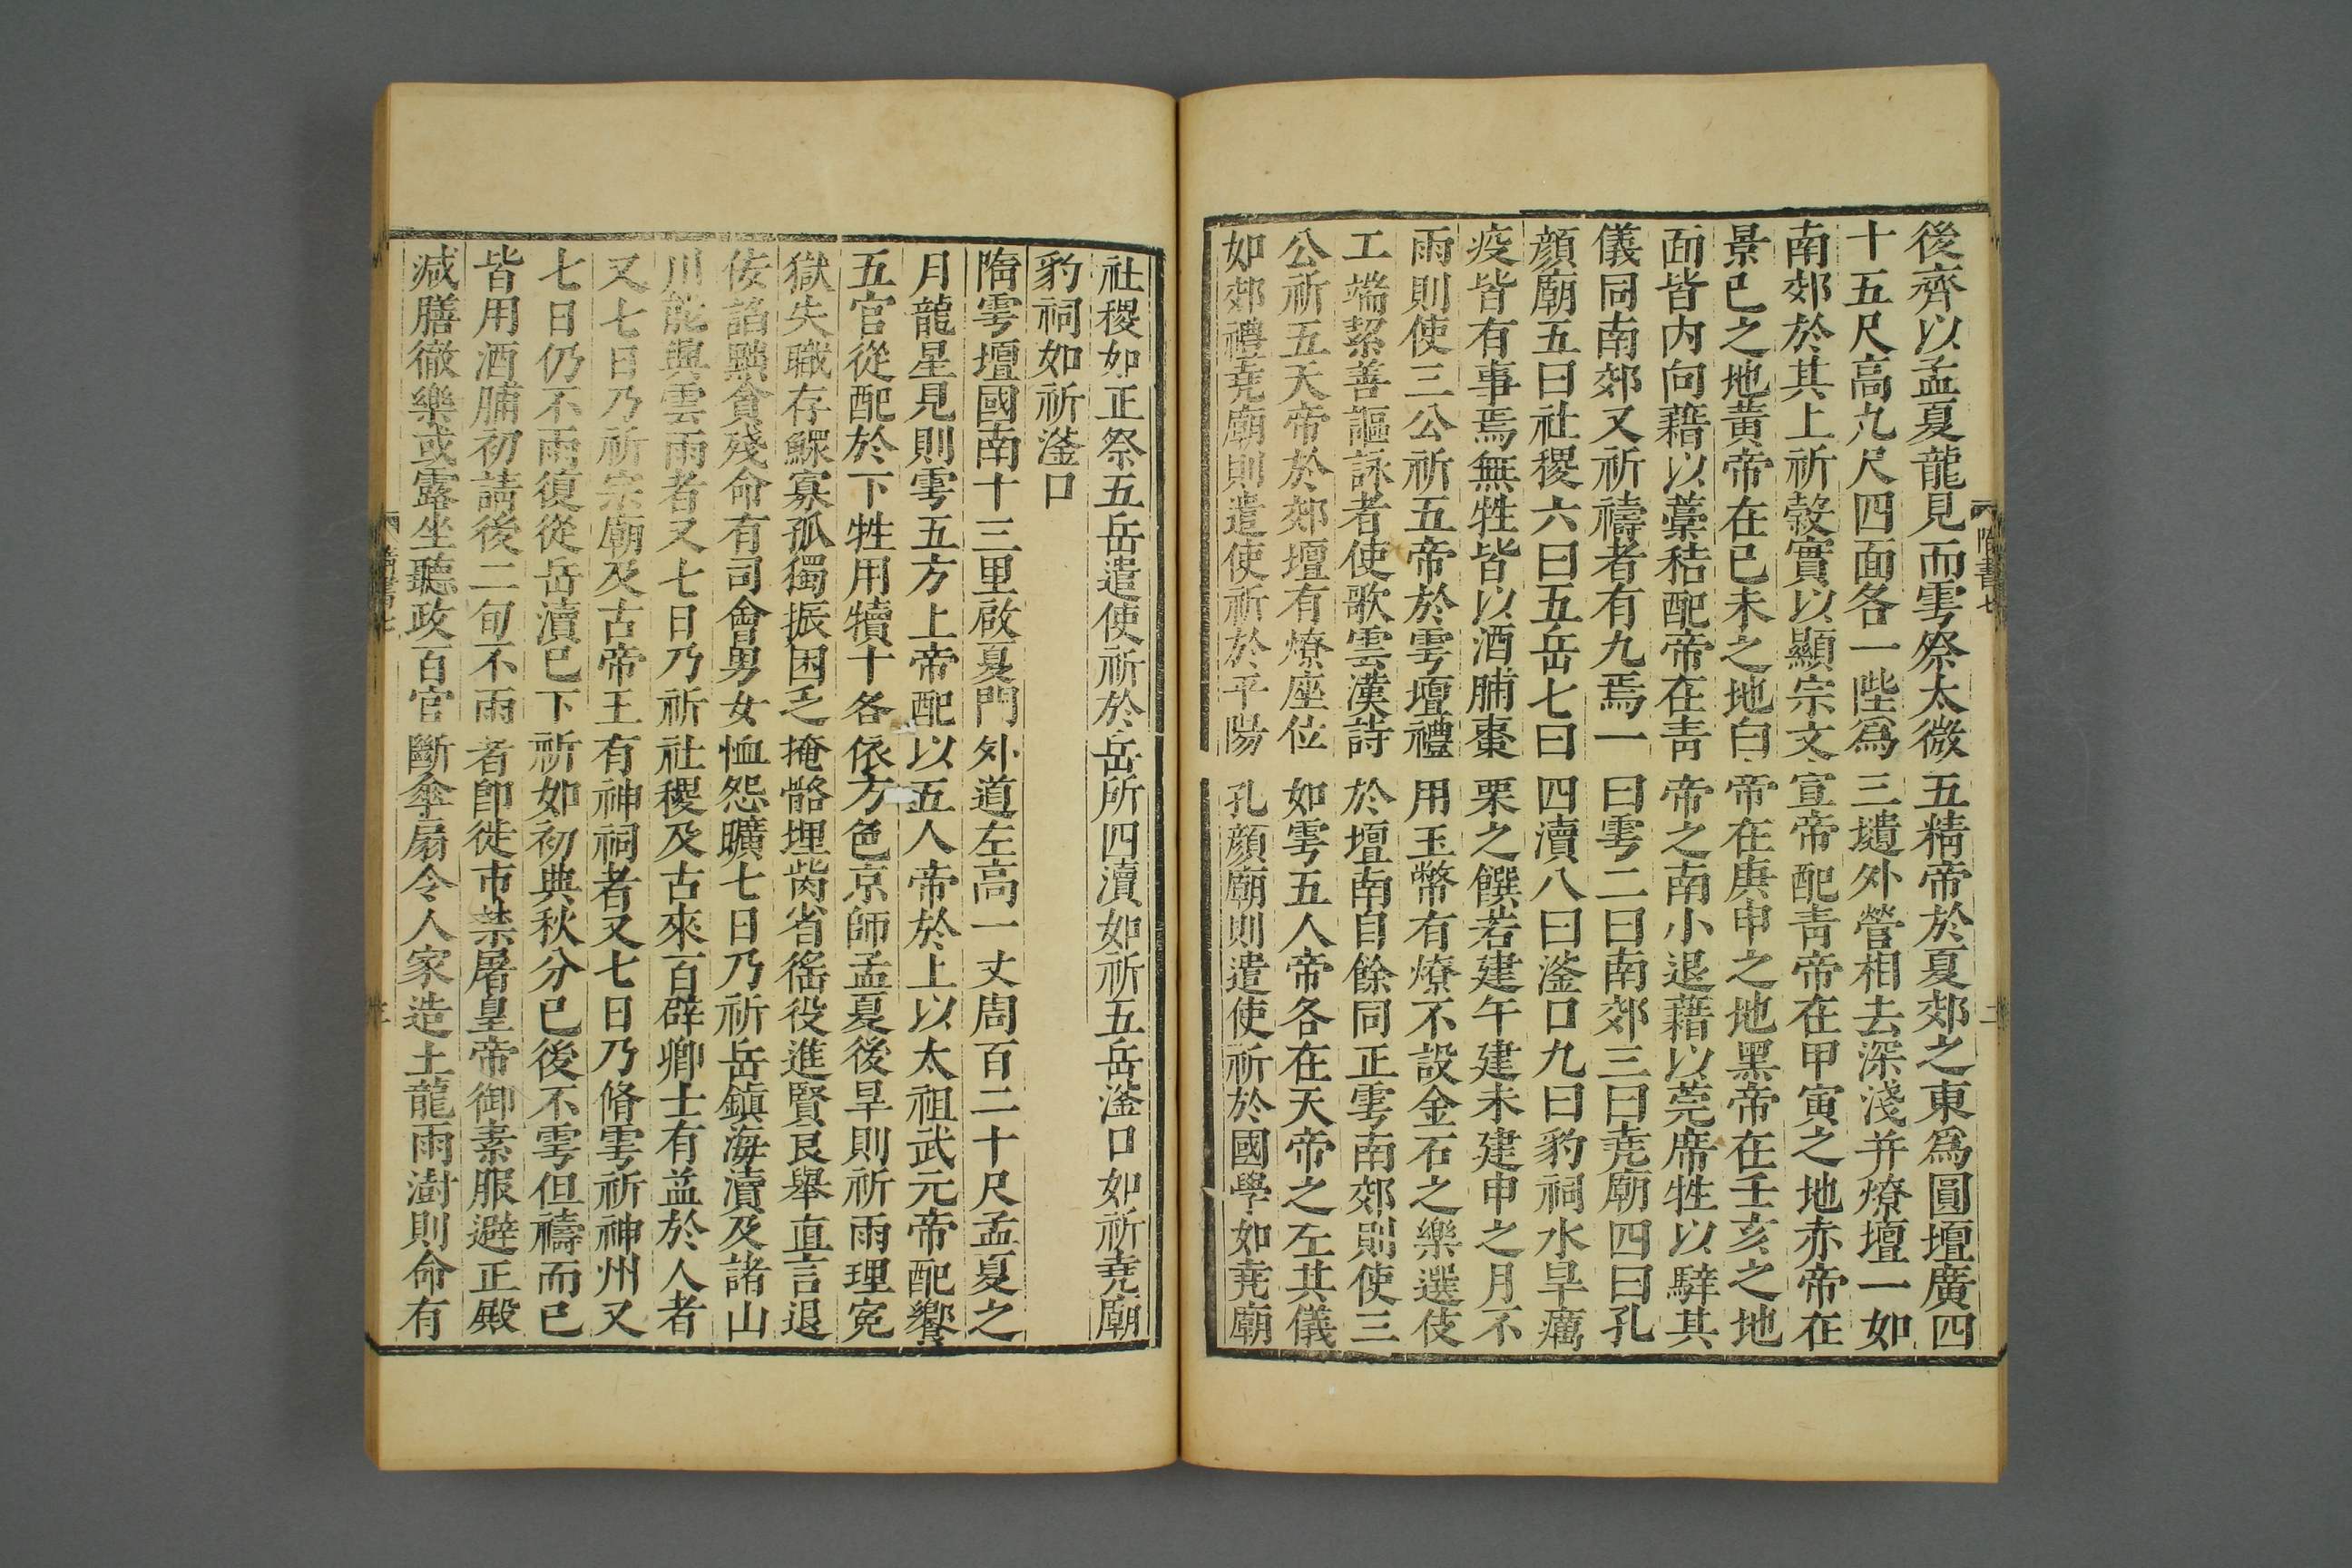 後齊以孟夏龍見而雩祭太微五精帝於夏郊之東爲圓壇廣四
十五尺高九尺四面各一陛爲三壝外營相去深淺并燎壇一如
南郊於其上祈穀實以顯宗文宣帝配靑帝在甲寅之地赤帝在
景巳之地黃帝在己未之地白帝在庚申之地黑帝在壬亥之地
面皆內向藉以藁秸配帝在靑帝之南小退藉以莞席牲以騂其
儀同南郊又祈禱者有九焉一曰雩二曰南郊三曰堯廟四曰孔
顏廟五曰社稷六曰五岳七曰四瀆八曰滏口九曰豹祠水旱癘
疫皆有事焉無牲皆以酒脯棗栗之饌若建午建未建申之月不
雨則使三公祈五帝於雩壇禮用玉幣有燎不設金石之樂選伎
工端絜善謳詠者使歌雲漢詩於壇南自餘同正雩南郊則使三
公祈五天帝於郊壇有燎座位如雩五人帝各在天帝之左其儀
如郊禮堯廟則遣使祈於平陽孔顏廟則遣使祈於國學如堯廟
社稷如正祭五岳遣使祈於岳所四瀆如祈五岳滏口如祈堯廟
豹祠如祈滏口
隋雩壇國南十三里啟夏門外道左高一丈周百二十尺孟夏之
月龍星見則雩五方上帝配以五人帝於上以太祖武元帝配饗
五官從配於下牲用犢十各依方色京師孟夏後旱則祈雨理寃
獄失職存鰥寡孤獨振困乏掩骼埋胔省徭役進賢良舉直言退
佞諂黜貪殘命有司會男女恤怨曠七日乃祈岳鎮海瀆及諸山
川能興雲雨者又七日乃祈社稷及古來百辟卿士有益於人者
又七日乃祈宗廟及古帝王有神祠者又七日乃脩雩祈神州又
七日仍不雨復從岳瀆已下祈如初典秋分已後不雩但禱而已
皆用酒脯初請後二旬不雨者卽徙市禁屠皇帝御素服避正殿
減膳徹樂或露坐聽政百官斷傘扇令人家造土龍雨澍則命有
隋書七